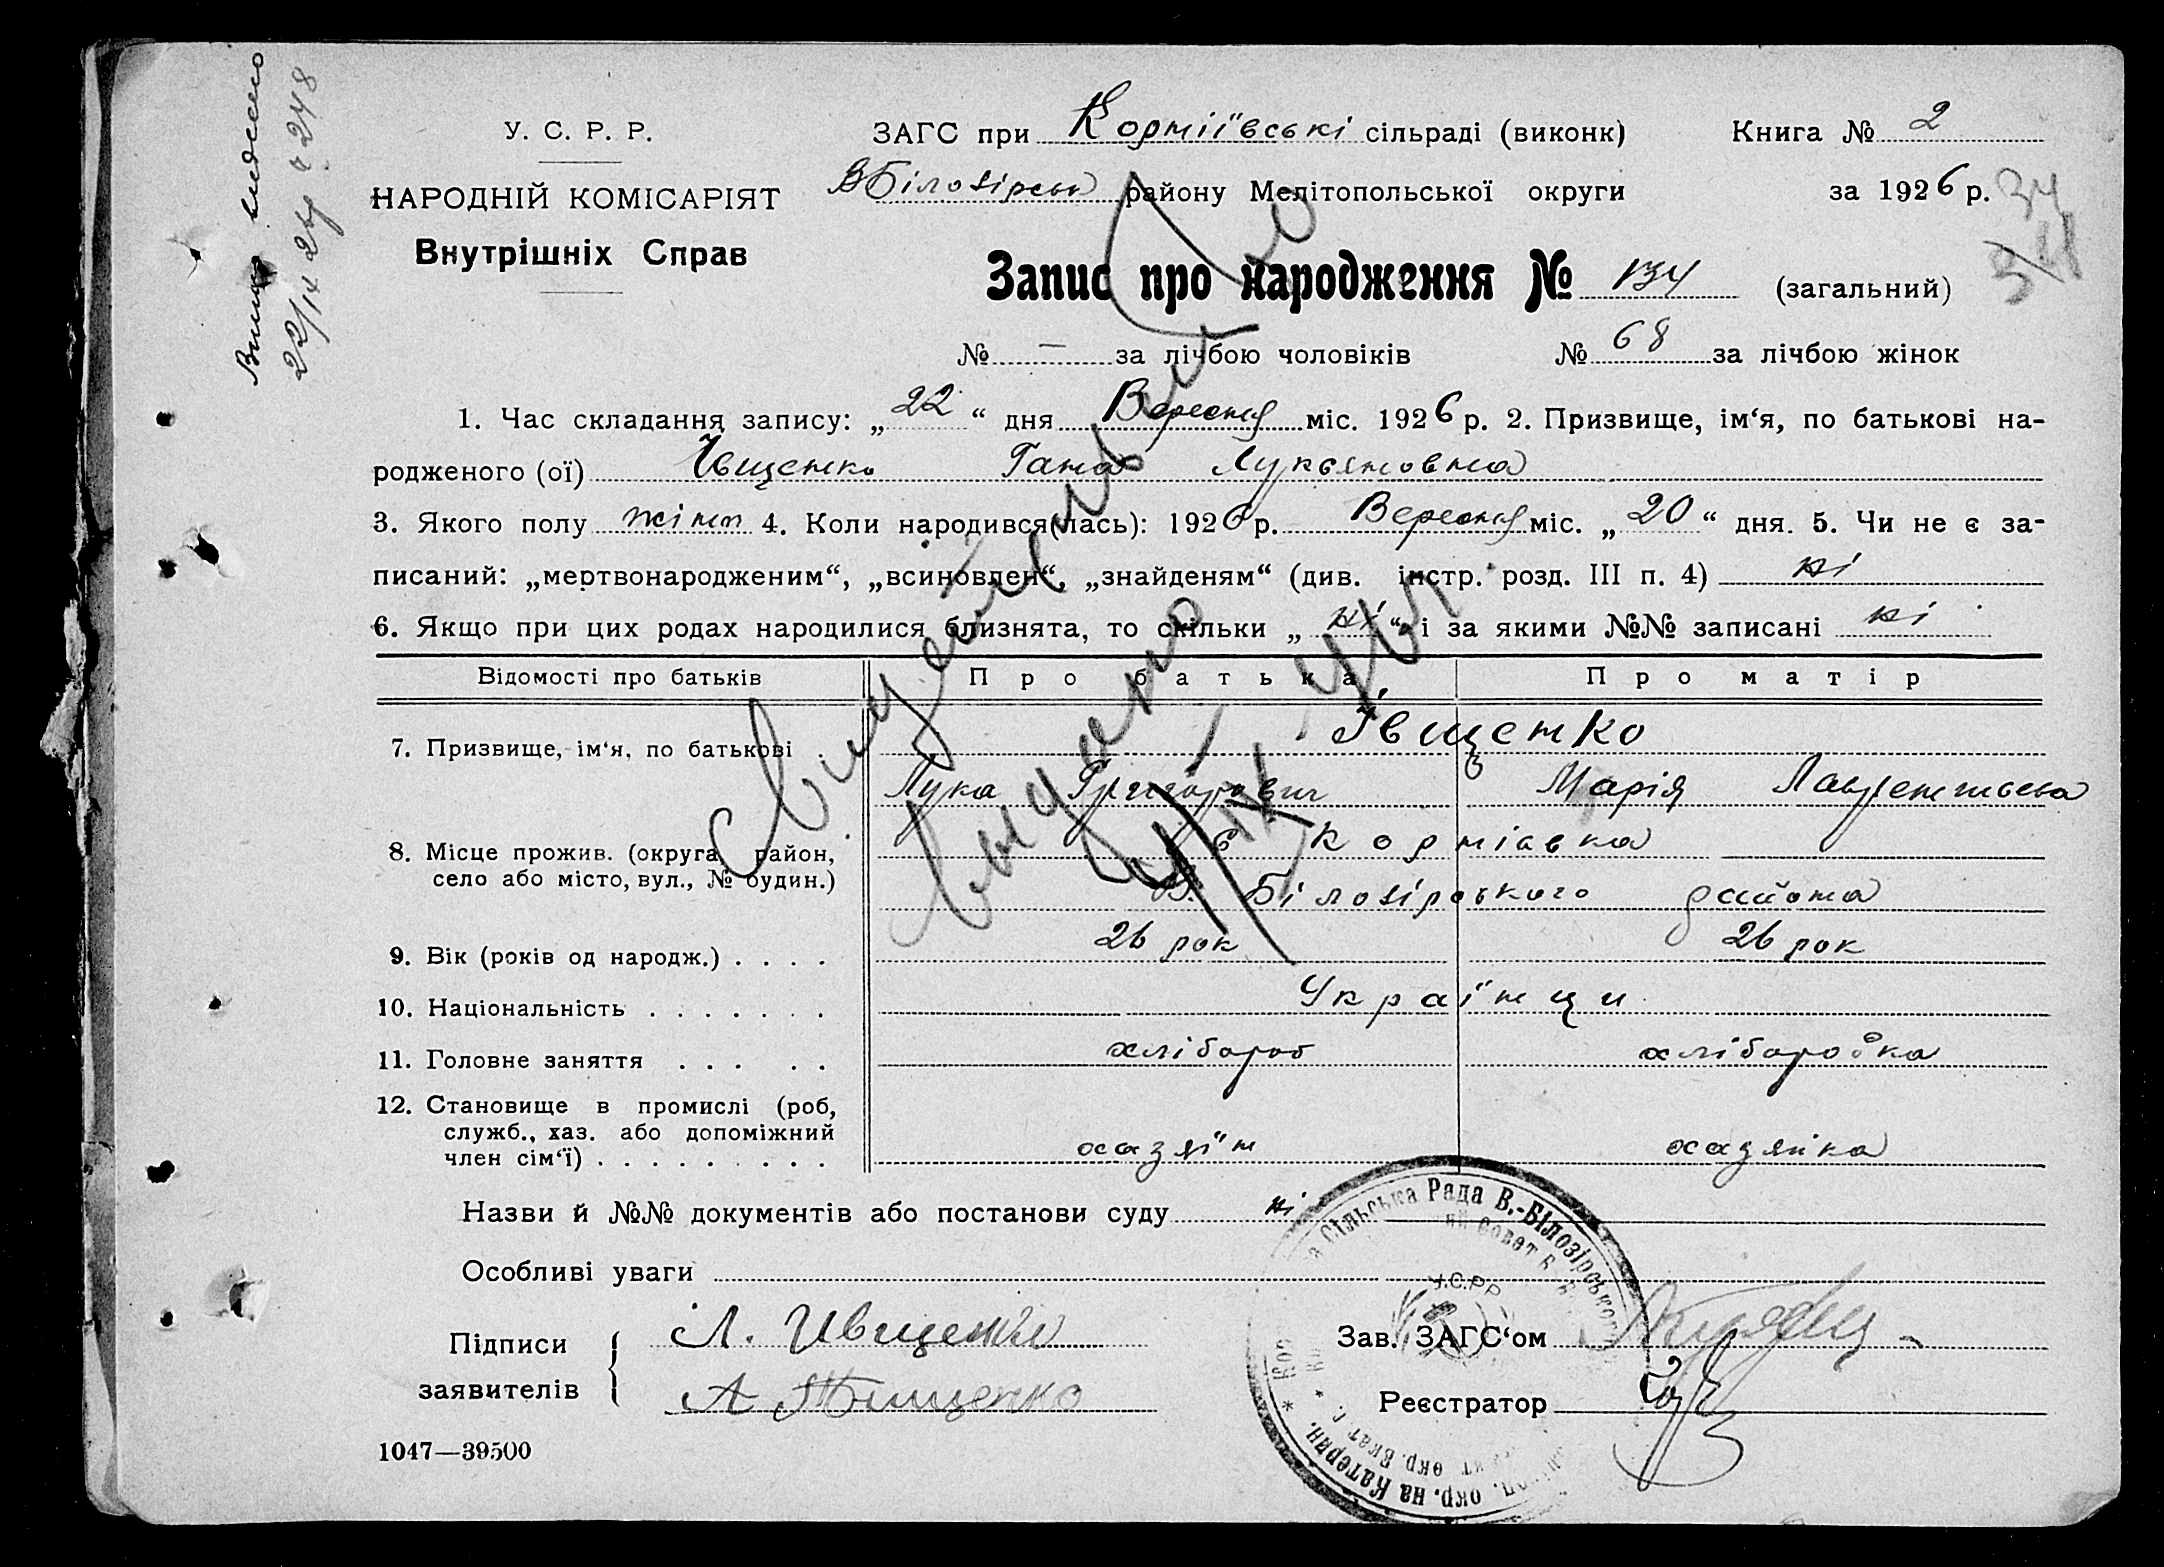 У. С. Р. Р.
НАРОДНІЙ КОМІСАРІЯТ
Внутрішніх Справ
ЗАГС при Корніївські сільраді (виконк)
ВБілозірськ району Мелітопольської округи
Книга № 2
за 1926 р.
34
Запис про народження № 134 (загальний)
№ — за лічбою чоловіків № 68 за лічбою жінок
1. Час складання запису: „22“ дня Вересня міс. 1926 р. 2. Призвище, ім‘я, по батькові на-
родженого (ої) Івщенко Гана Лукьяновна
3. Якого полу жіноч 4. Коли народився(лась): 1926 р. Вересня міс. „20“ дня. 5. Чи не є за-
писаний: „мертвонародженим“, „всиновлен“, „знайденям“ (див. інстр. розд. III п. 4) ні
6. Якщо при цих родах народилися близнята, то скільки „ні“ і за якими №№ записані ні
Відомості про батьків Про батька Про матір
7. Призвище, ім‘я, по батькові . Івщенко
Лука Григорович Марія Лаврентьевна
8. Місце прожив. (округа, район, с Корніівка
село або місто, вул., № будин.) В. Білозірського района
9. Вік (років од народж.) . . . . 26 рок 26 рок
10. Національність . . . . . . . Українци
11. Головне заняття . . . . . хлібороб хлібаробка
12. Становище в промислі (роб,
служб., хаз. або допоміжний
член сім‘ї) . . . . . . . . . хазяїн хазяйка
Назви й №№ документів або постанови суду ні
Особливі уваги
Підписи
заявителів
Л. Ивщенко
А Тищенко
Зав. ЗАГС‘ом
Реєстратор
Сільська Рада В.-Білозірського
У.С.Р.Р.
окр. на Катерин.
1047—39500
Свидетельство
выдано